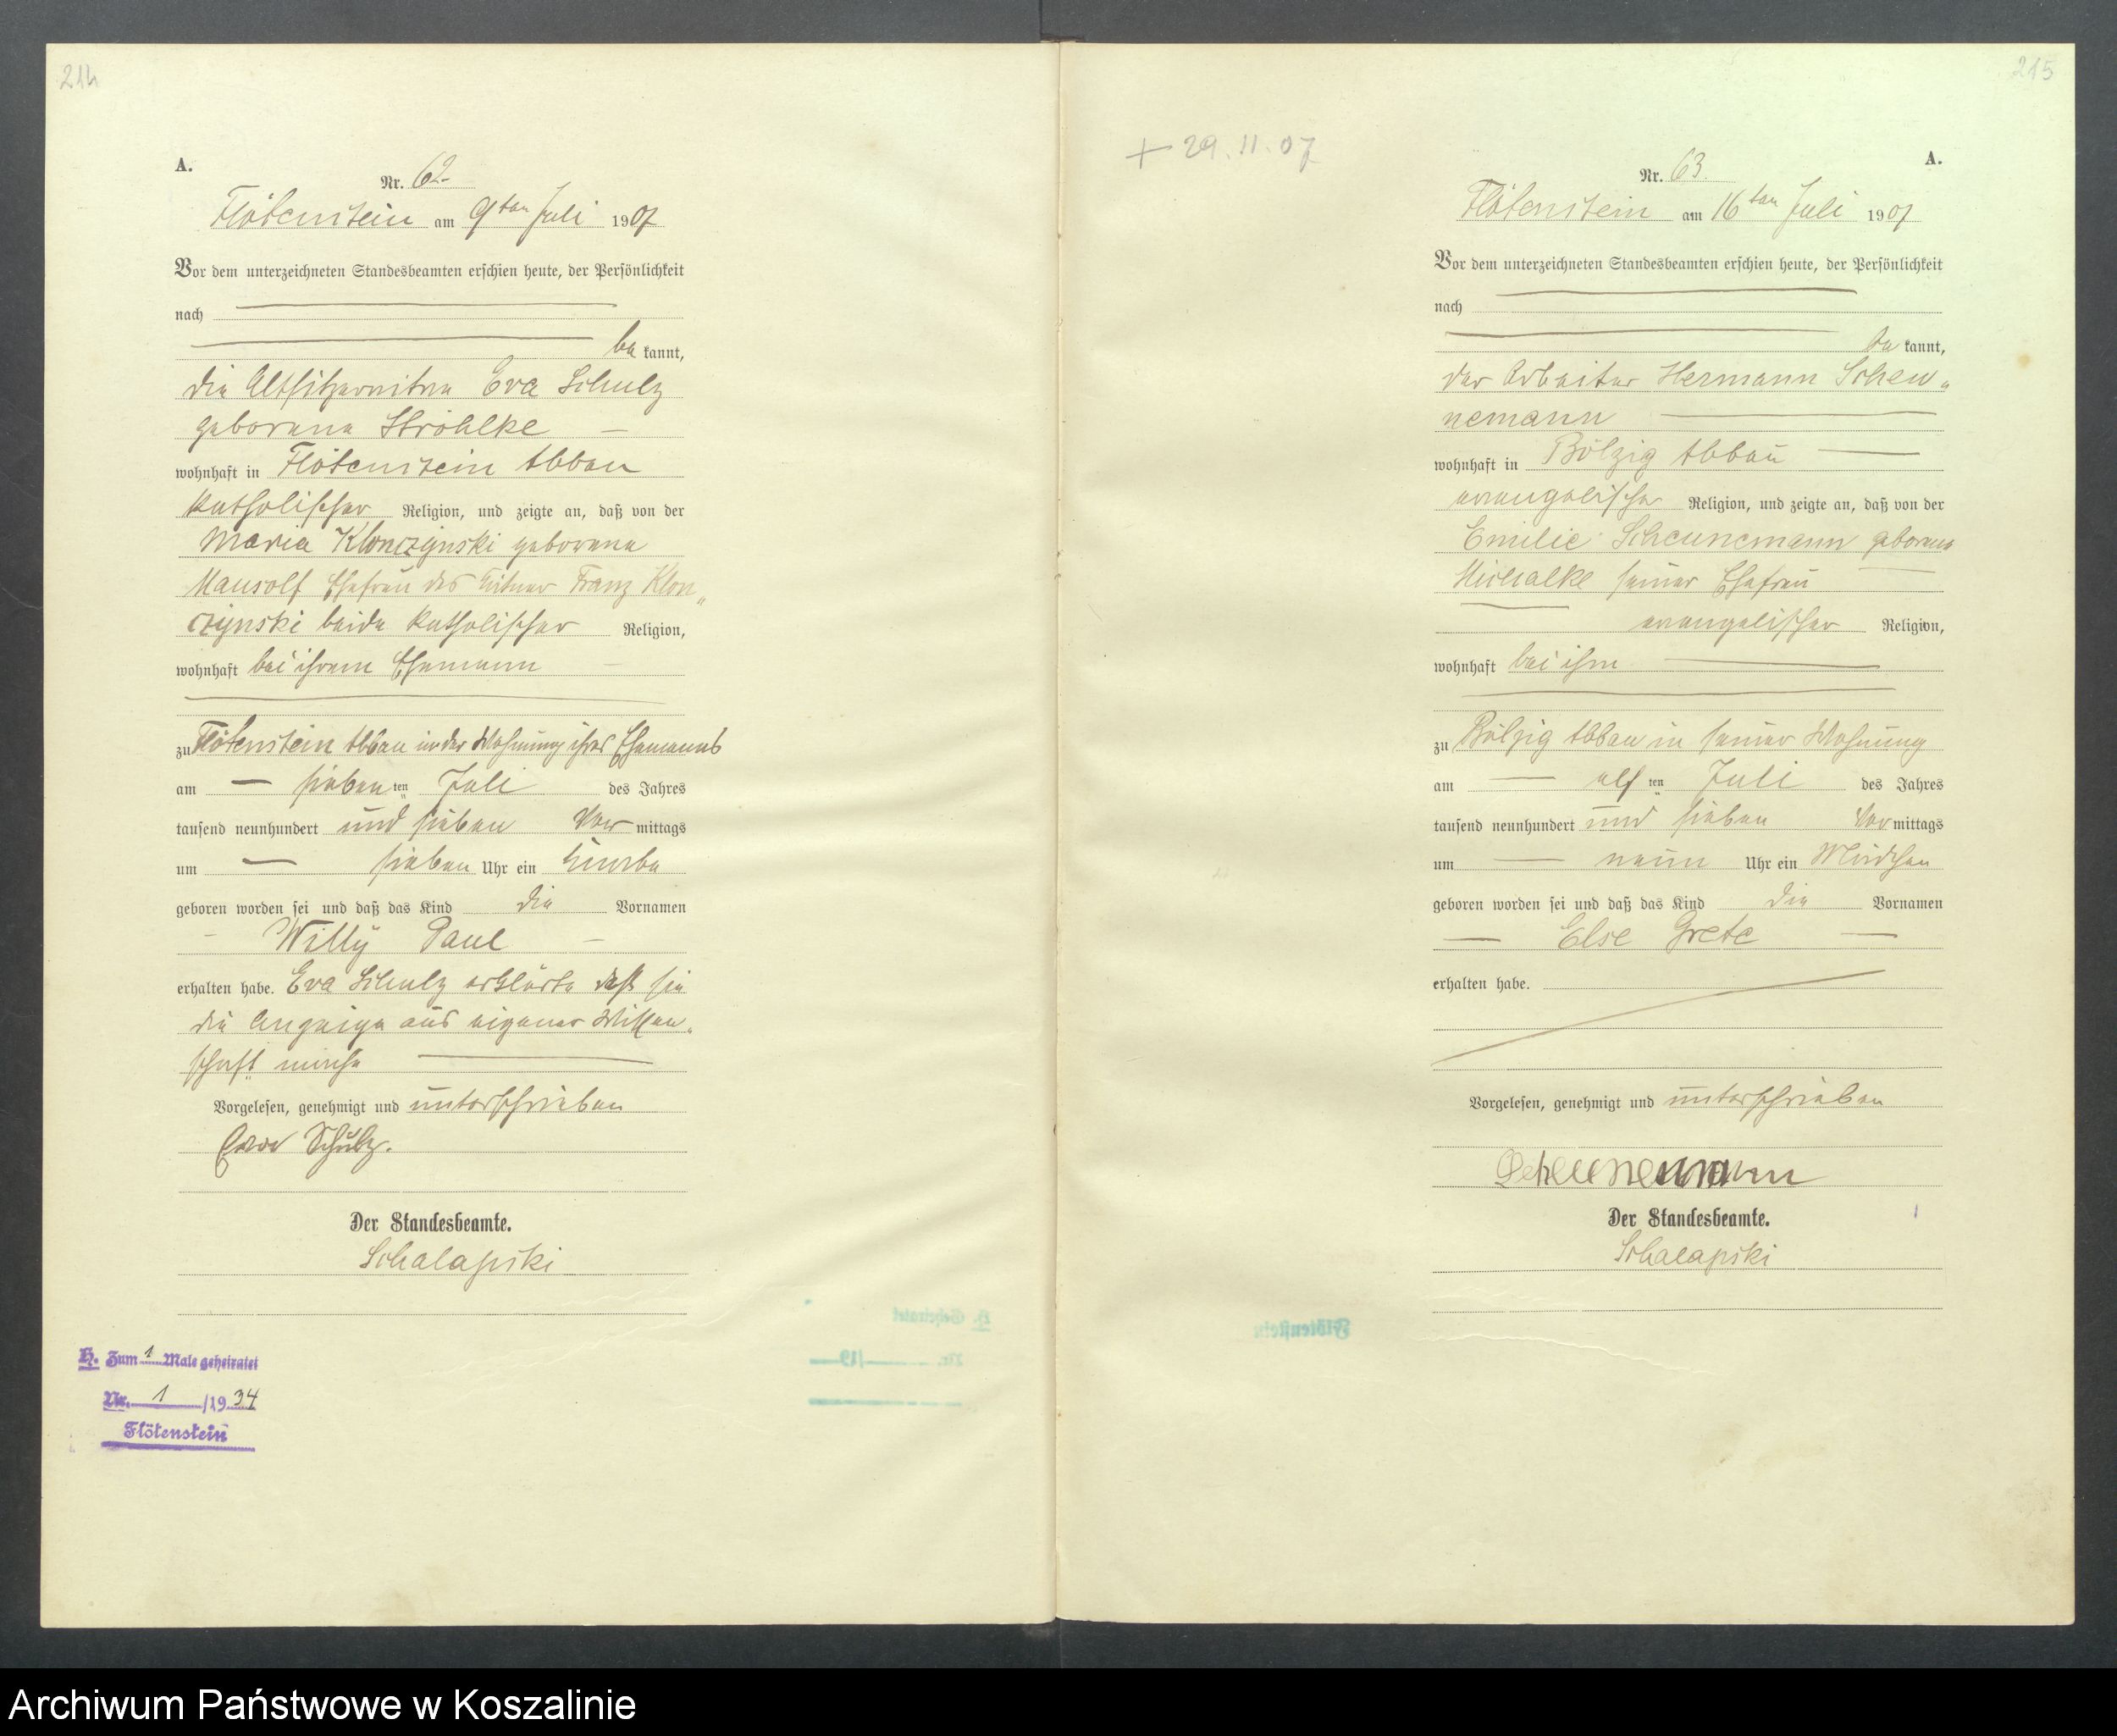 214
A.
Nr. 62
Flötenstein am 9ten Juli 1907
Vor dem unterzeichneten Standesbeamten erschien heute, der Persönlichkeit
nach
be kannt,
die Altsitzerwitwe Eva Schulz
geborene Ströhlke
wohnhaft in Flötenstein Abbau
katholischer Religion, und zeigte an, daß von der
Maria Klonczynski geborene
Mausolf Ehefrau des Franz Klon„
czynski beide katholischer Religion,
wohnhaft bei ihrem Ehemann
zu Flötenstein Abbau in der Wohnung ihres Ehemanns
am sieben ten Juli des Jahres
tausend neunhundert und sieben Vor mittags
um sieben Uhr ein Knabe
geboren worden sei und daß das Kind die Vornamen
Willy Paul
erhalten habe. Eva Schulz erklärte daß sie
die Anzeige aus eigener Wissen„
schaft mache
Vorgelesen, genehmigt und unterschrieben
Schulz.
Der Standesbeamte.
Schalapski
H. Zum 1 Male geheiratet
Nr. 1 /1934
Flötenstein
215
+ 29.11.07
A.
Nr. 63.
Flötenstein am 16ten Juli 1907
Vor dem unterzeichneten Standesbeamten erschien heute, der Persönlichkeit
nach
be kannt,
der Arbeiter Hermann Scheu„
nemann
wohnhaft in Bölzig Abbau
evangelischer Religion, und zeigte an, daß von der
Emilie Scheunemann geborene
Michalke seiner Ehefrau
evangelischer Religion,
wohnhaft bei ihm
zu Bölzig Abbau in seiner Wohnung
am elf ten Juli des Jahres
tausend neunhundert und sieben Vor mittags
um neun Uhr ein Mädchen
geboren worden sei und daß das Kind die Vornamen
Else Grete
erhalten habe.
Vorgelesen, genehmigt und unterschrieben
Scheunemann
Der Standesbeamte.
Schalapski
Archiwum Państwowe w Koszalinie